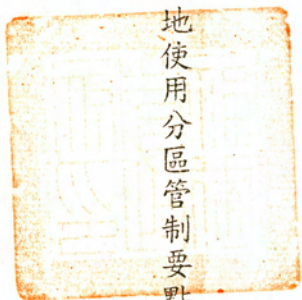 地使用分區管制要點